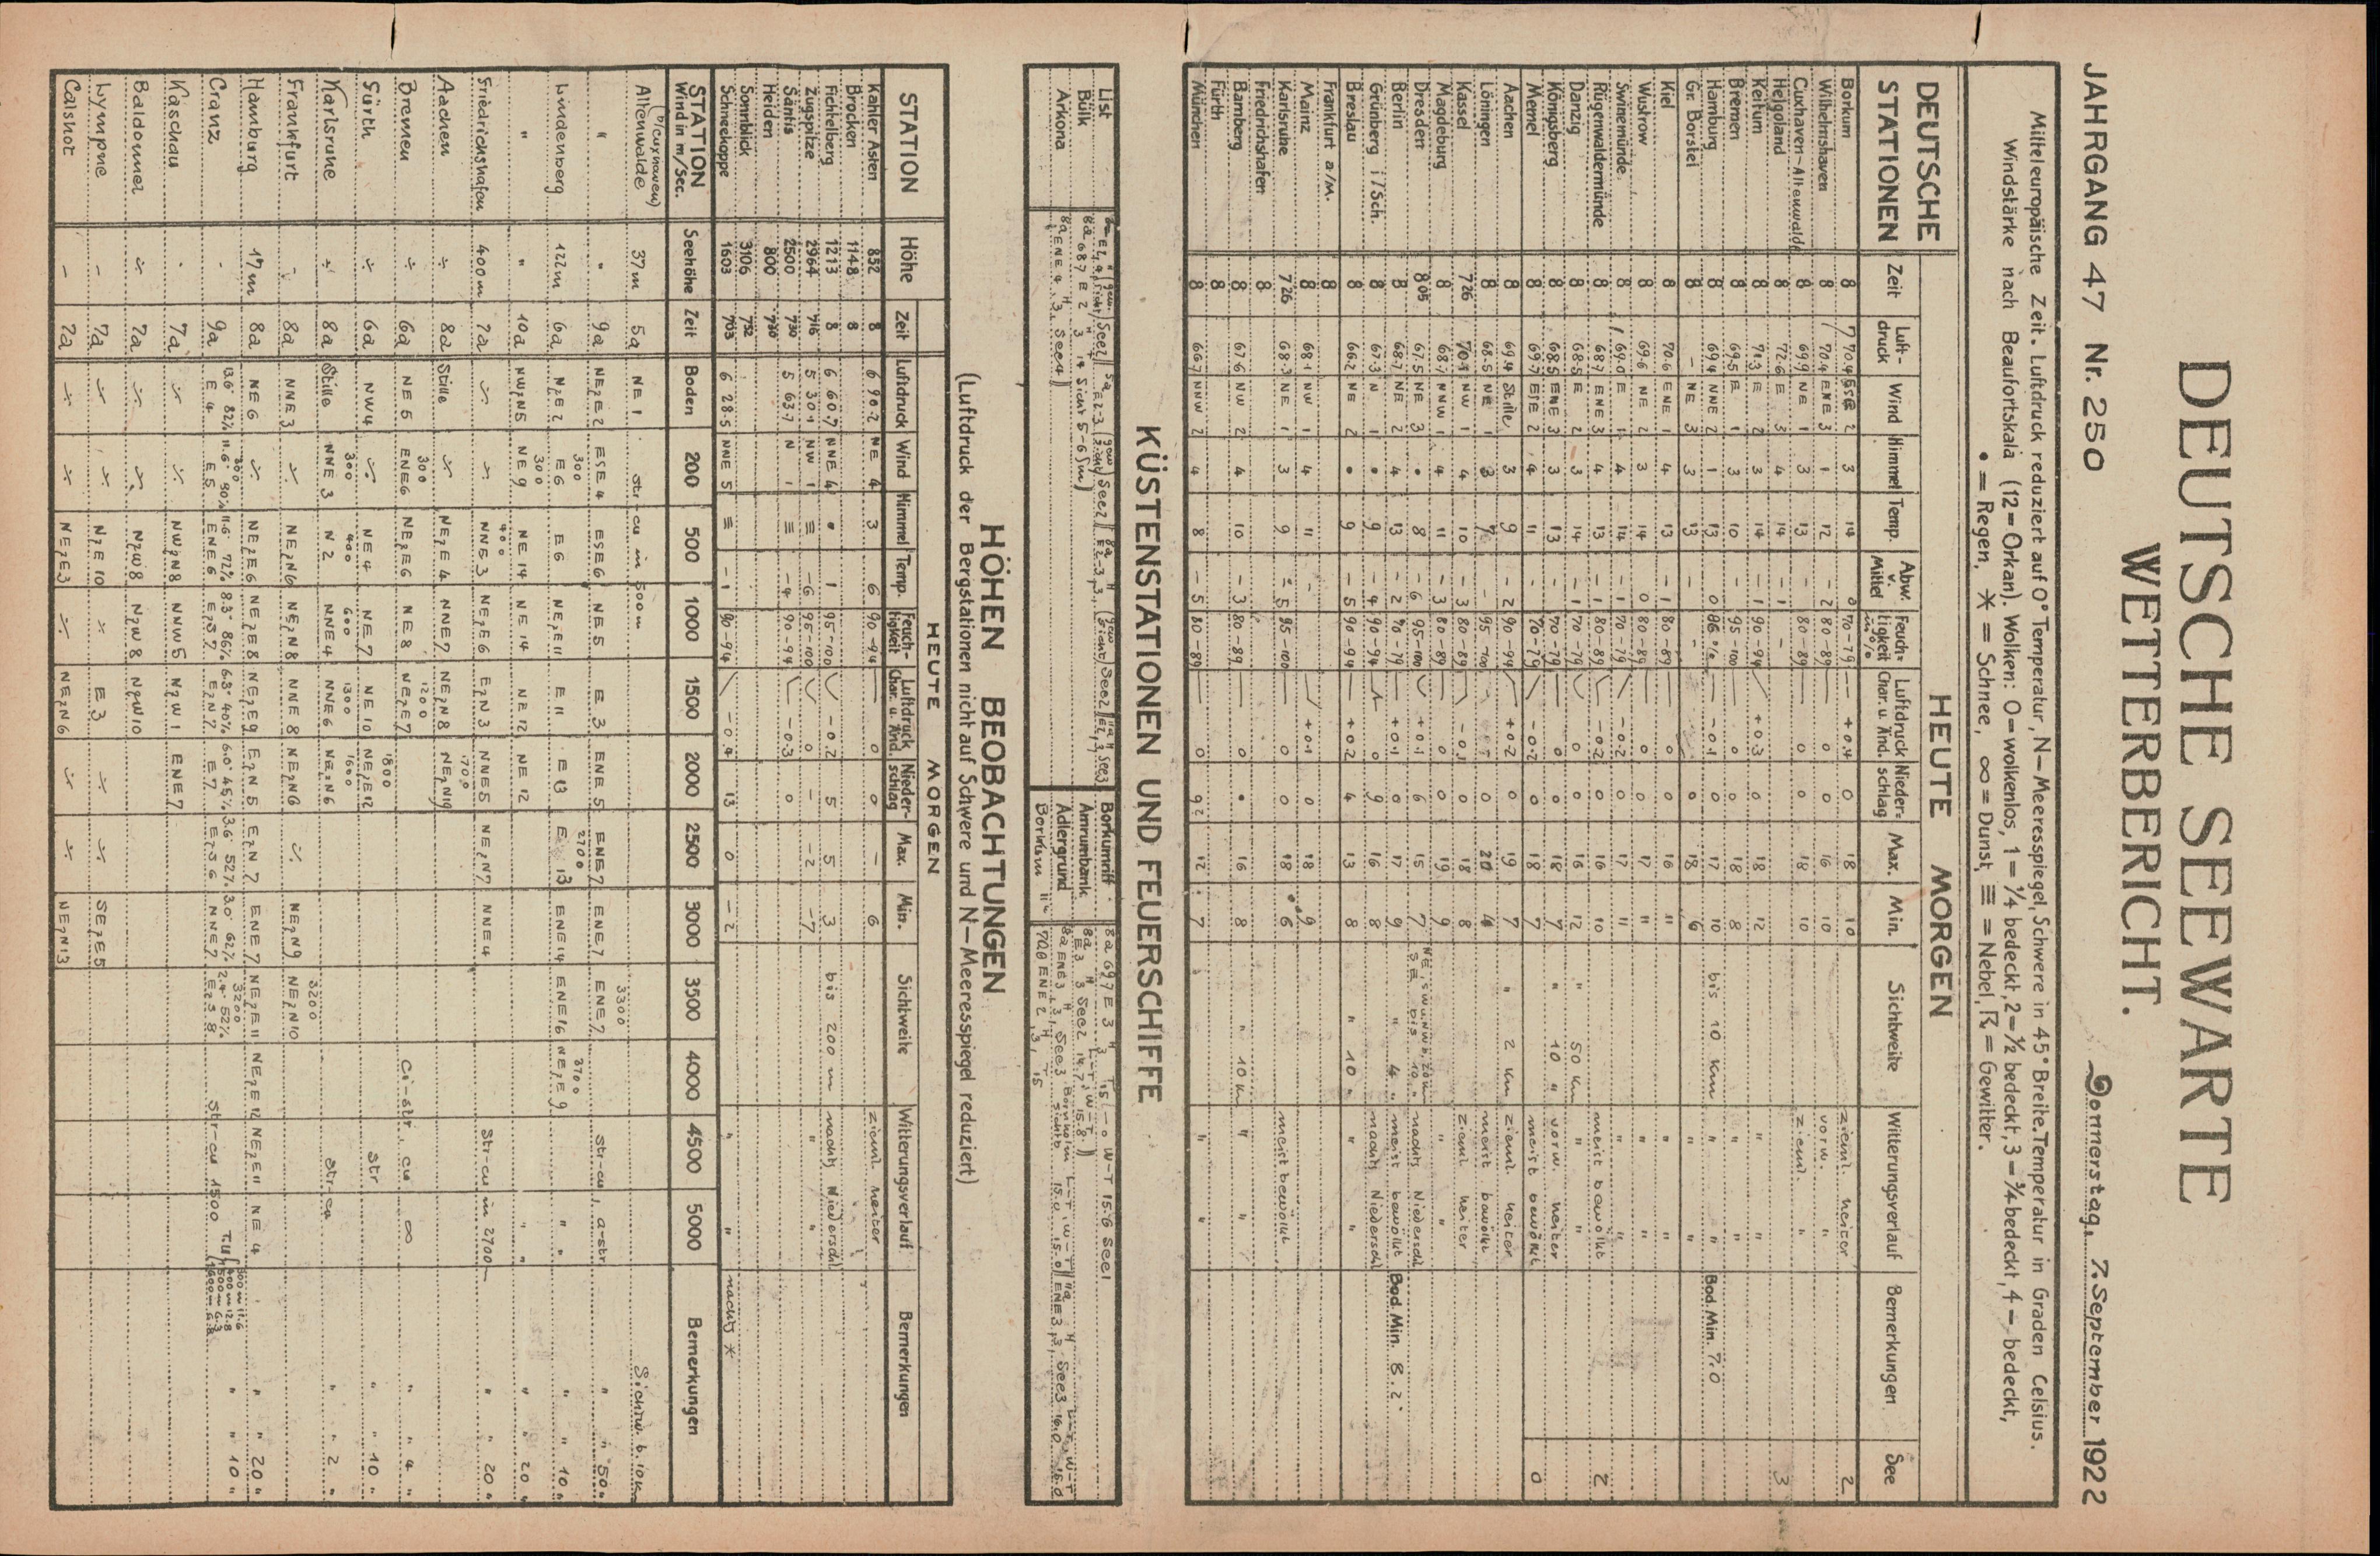 DEUTSCHE SEEWARTE
WETTERBERICHT.
JAHRGANG 47 Nr. 250 Donnerstag, 7. September 1922
Mitteleuropäische Zeit. Luftdruck reduziert auf 0° Temperatur, N—Meeresspiegel, Schwere in 45° Breite. Temperatur in Graden Celsius.
Windstärke nach Beaufortskala (12 = Orkan). Wolken: 0 = wolkenlos, 1 = 1/4 bedeckt, 2 = 1/2 bedeckt, 3 = 3/4 bedeckt, 4 = bedeckt,
• = Regen, * = Schnee, ∞ = Dunst, ≡ = Nebel, = Gewitter.
DEUTSCHE STATIONEN HEUTE MORGEN
Zeit Luftdruck Wind Himmel Temp. Abw. v. Mittel Feuchtigkeit in % Luftdruck Char. u. Änd. Niederschlag Max. Min. Sichtweite Witterungsverlauf Bemerkungen See
Borkum 8 70.4 ESE 2 3 14 0 70-79 +0.4 0 18 10 zieml. heiter 2
Wilhelmshaven 8 70.4 ENE 3 1 12 -2 80-89 0 0 16 10 vorw. "
Cuxhaven-Altenwalde 8 69.9 NE 1 3 13 - 80-89 0 0 18 10 zieml. "
Helgoland 8 72.6 E 3 4 14 -1 - 3
Keitum 8 71.3 E 2 3 14 -1 90-94 +0.3 18 12 " "
Bremen 8 69.5 E 1 3 10 - 95-100 0 0 18 8 " "
Hamburg 8 69.4 NNE 2 1 13 0 86% -0.1 0 17 10 bis 10 km " " Bod. Min. 7.0
Gr. Borstel 8 - NE 3 3 13 - - 0 18 6 " "
Kiel 8 70.6 ENE 1 4 13 -1 80-89 0 0 16 11 " "
Wustrow 8 69.6 NE 2 3 14 0 80-89 0 0 17 11 " "
Swinemünde 8 69.0 E 1 4 14 -1 70-79 -0.2 0 17 11 " "
Rügenwaldermünde 8 68.7 ENE 3 4 13 -1 80-89 -0.2 0 16 10 meist bewölkt 2
Danzig 8 68.5 E 2 3 14 -1 70-79 0 0 16 12 " 50 km " "
Königsberg 8 68.5 ENE 3 3 13 - 70-79 0 0 18 7 " 10 " vorw. heiter
Memel 8 69.7 ESE 2 4 11 - 70-79 -0.2 0 18 7 meist bewölkt 0
Aachen 8 69.4 Stille 3 9 -2 90-94 +0.2 0 19 7 " 2 km zieml. heiter
Löningen 8 68.5 NE 1 3 - 95-100 20 4 meist bewölkt
Kassel 7 26 70.1 NW 1 4 10 -3 80-89 -0.1 0 18 8 zieml. heiter
Magdeburg 8 68.7 NNW 1 4 11 -3 80-89 0 0 19 9 " "
Dresden 8 05 67.5 NE 3 • 8 -6 95-100 +0.1 6 15 7 nachts Niederschl
Berlin 8 68.7 NE 2 4 13 -2 70-79 +0.1 0 17 9 " 4 " meist bewölkt Bod. Min. 8.2
Grünberg i/Sch. 8 67.3 N 1 • 9 -4 90-94 0 9 16 8 nachts Niederschl
Breslau 8 66.2 NE 2 • 9 -5 90-94 +0.2 4 13 8 " 10 " " "
Frankfurt a/M. 8
Mainz 8 68.1 NW 1 4 11 - +0.1 0 18 9
Karlsruhe 7 26 68.3 NE 1 3 9 -5 95-100 0 0 18 6 meist bewölkt
Friedrichshafen 8
Bamberg 8 67.6 NW 2 4 10 -3 80-89 0 • 16 8 " 10 km " "
Fürth 8
München 8 66.7 NNW 2 4 8 -5 80-89 0 9 2 12 7 " "
KÜSTENSTATIONEN UND FEUERSCHIFFE
List
Bülk 8a 687 E 2 3 14 Sicht 5-6 Sm)
Arkona 8a ENE 4 3 See 4)
Borkumriff 8a 697 E 3 3 T 15.-0 W-T 15.6 See 1
Amrumbank 8a E 3 3 See 2 14.7 W-T 15.8)
Adlergrund 8a ENE 3 3 See 3
Borkum 11a 700 ENE 2 3 T 15
HÖHEN BEOBACHTUNGEN
(Luftdruck der Bergstationen nicht auf Schwere und N—Meeresspiegel reduziert)
STATION Höhe HEUTE MORGEN
Zeit Luftdruck Wind Himmel Temp. Feuchtigkeit Luftdruck Char. u. Änd. Niederschlag Max. Min. Sichtweite Witterungsverlauf Bemerkungen
Kahler Asten 852 8 6 90.2 NE 4 3 6 90-94 0 0 - 6 zieml. heiter
Brocken 1148 8
Fichtelberg 1213 8 6 60.7 NNE 4 • 1 95-100 -0.2 5 5 3 bis 200 m nachts Niederschl
Zugspitze 2964 7 16 5 30.1 NW 1 ≡ -6 95-100 0 - -2 -7 " "
Säntis 2500 7 30 5 63.7 N 1 ≡ -4 90-94 -0.3 0
Heiden 800 7 30
Sonnblick 3106 7 52
Schneekoppe 1603 7 03 6 28.5 NNE 5 ≡ -1 90-94 -0.4 13 0 -2 " " nachts *
STATION Wind in m/Sec. Seehöhe Zeit Boden 200 500 1000 1500 2000 2500 3000 3500 4000 4500 5000 Bemerkungen
Altenwalde (b/Cuxhaven) 37m 5a NE 1 str-cu in 500 m Sichtw. b. 10 km
" " 9a NEzE 2 ESE 4 ESE 6 NE 5 E 3 ENE 5 2700 ENE 7 ENE 7 3300 ENE 7 str-cu, a-str " " 50 "
Lindenberg 122m 6a NzE 2 300 E 6 E 6 NEzE 11 E 11 E 13 E 13 ENE 14 ENE 16 3700 NEzE 9 " " " " 10 "
" " 10a NWzN 5 300 NE 9 NE 14 NE 14 NE 12 NE 12 " " " " 20 "
Friedrichshafen 400m 7a ÷ ÷ 400 NNE 3 NEzE 6 EzN 3 NNE 5 NEzN 7 NNE 4 str-cu in 2700— " " 20 "
Aachen ÷ 8a Stille ÷ NEzE 4 NNE 7 NEzN 8 1700 NEzN 9
Bremen ÷ 6a NE 5 300 ENE 6 NEzE 6 NE 8 1200 NEzE 7 Ci-str, cu ∞ " " 4 "
Fürth ÷ 6a NW 4 ÷ NE 4 NE 7 NE 10 1800 NEzE 12 str " " 10 "
Karlsruhe ÷ 8a Stille 300 NNE 3 400 N 2 600 NNE 4 1300 NNE 6 1600 NEzN 6 str-cu " " 2 "
Frankfurt - 8a NNE 3 ÷ NEzN 6 NEzN 8 NNE 8 NEzN 6 ÷ NEzN 9 3200 NEzN 10
Hamburg 17m 8a NE 6 ÷ NEzE 6 NEzE 8 NEzE 9 EzN 5 EzN 7 ENE 7 NEzE 11 NEzE 12 NEzE 11 NE 4 " " 20 "
Cranz - 9a 13.6° 82% E 4 300 11.6° 80% E 5 11.6° 72% ENE 6 8.3° 86% EzS 7 6.3° 40% EzN 7 6.0° 45% E 7 3.6° 52% EzS 6 3.0° 62% NNE 7 3200 2.4° 52% EzS 8 str-cu 1500 " " 10 "
Kaschau - 7a ÷ ÷ NWzN 8 NNW 5 NzW 1 ENE 7
Baldonnel ÷ 7a ÷ ÷ NzW 8 NzW 8 NzW 10
Lympne - 7a ÷ ÷ NzE 10 ÷ E 3 ÷ ÷ SEzE 5
Calshot - 7a ÷ ÷ NEzE 3 ÷ NEzN 6 ÷ ÷ NEzN 13